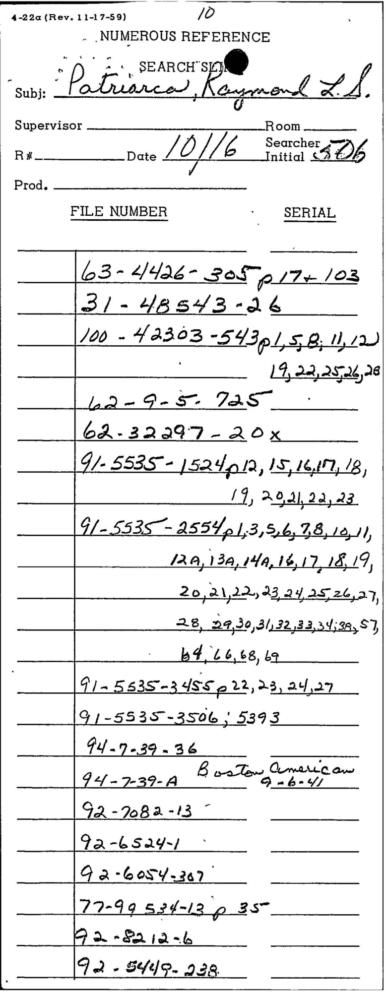 10
4-22a (Rev. 11-17-59)
NUMEROUS REFERENCE
SEARCH SLIP
Subj: Patriarca, Raymond L.S.
Supervisor Room
R# Date 10/16 Searcher Initial
Prod.
FILE NUMBER SERIAL
63-4426-305 p 17+103
31-48543-26
100-42303-543 p1,5,8,11,12
19,22,25,26,28
62-9-5-725
62-32297-20x
91-5535-1524 p12,15,16,17,18,
19,20,21,22,23
91-5535-2554 p1,3,5,6,7,8,10,11,
12A,13A,14A,16,17,18,19,
20,21,22,23,24,25,26,27,
28,29,30,31,32,33,34,38,57,
64,66,68,69
91-5535-3455 p22,23,24,27
91-5535-3506; 5393
94-7-39-36
94-7-39-A Boston American 9-6-41
92-7082-13
92-6524-1
92-6054-307
77-99534-13 p 35
92-8212-6
92-5449-238